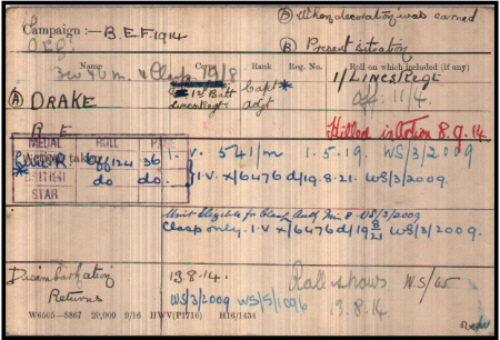 (D) When decoration was earned
Campaign :— B.E.F. 1914
(B) Present situation
Name Corps Rank Reg. No. Roll on which included (if any)
Clasp 19/8
1st Batt Capt * 1/Lincs Regt
(A) DRAKE Lincs Regt Adjt Off: 11/4
R. E. Killed in Action 8.9.14
MEDAL ROLL PAGE
VICTORY Off 124 36 I.V. 541/m 1.5.19. WS/3/2009
BRITISH do do. } I.V. X/6476 d/19.8.21. WS/3/2009.
STAR
Clasp only. I.V X/6476 d/19 8/21 WS/3/2009.
Disembarkation 13.8.14. Roll shows W.S/65
Returns WS/3/2009 WS/5/1096 13.8.14.
W6505—8867 20,000 9/16 HWV(P1716) H16/1434